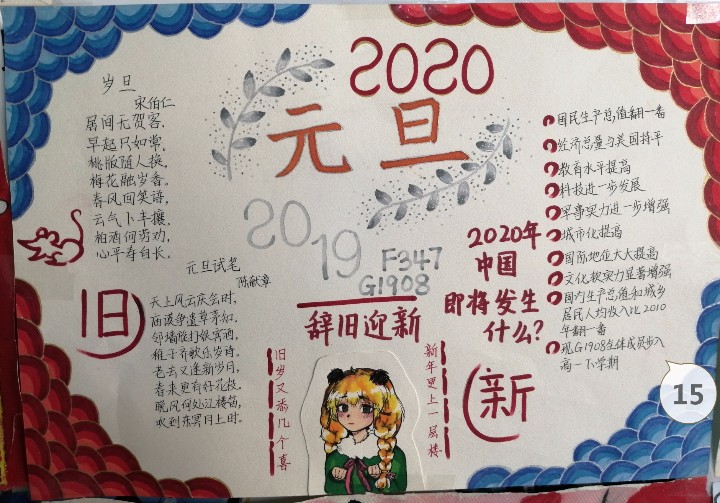 2020
元旦
岁旦
宋伯仁
居间无贺客,
早起只如常,
桃版随人换,
梅花隔岁香。
春风回笑语,
云气卜丰穰,
柏酒何劳劝,
心平寿自长。
元旦试笔
陈献章
天上风云庆会时,
庙谟争遣草茅知。
邻墙旋打娱宾酒,
稚子齐歌乐岁诗。
老去又逢新岁月,
春来更有好花枝。
晚风何处江楼笛,
吹到东溟月上时。
旧
2019
F347
G1908
辞旧迎新
旧岁又添几个喜
新年更上一层楼
2020年
中国
即将发生
什么?
国民生产总值翻一番
经济总量与美国持平
教育水平提高
科技进一步发展
军事实力进一步增强
城市化提高
国际地位大大提高
文化软实力显著增强
国内生产总值和城乡
居民人均收入比2010
年翻一番
现G1908全体成员步入
高一下学期
新
15